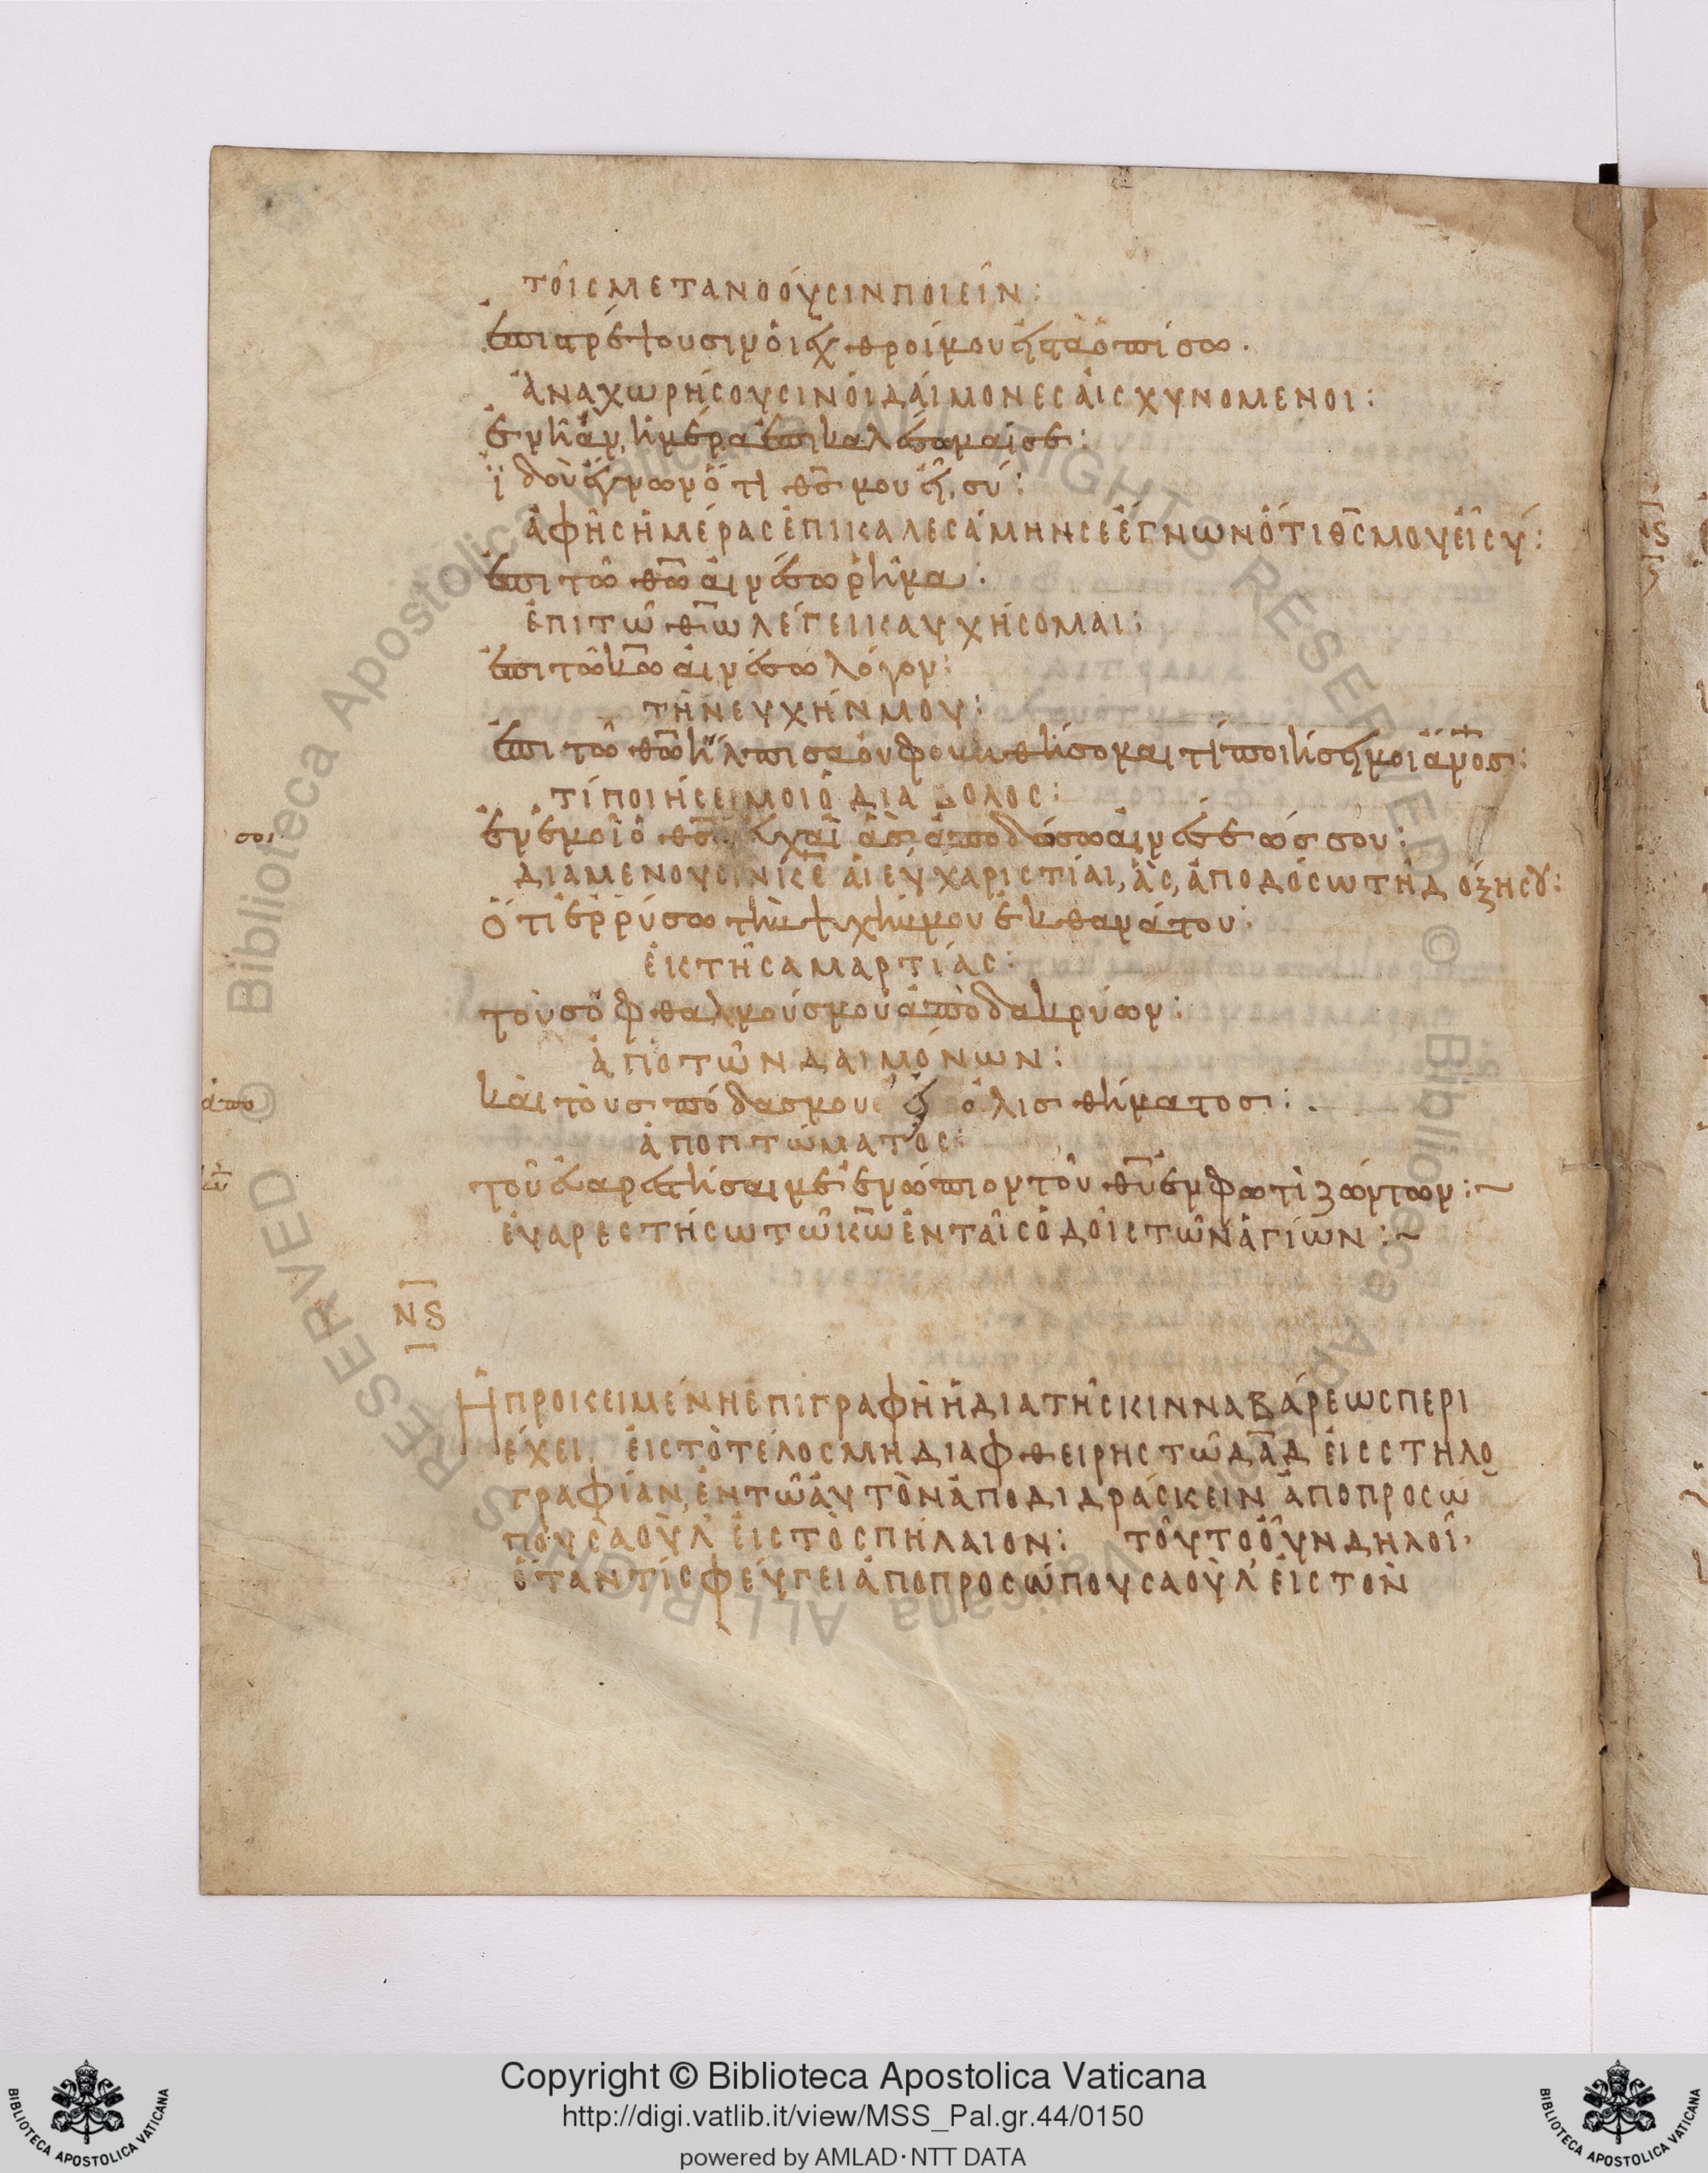 τοῖς μετανοοῦσιν ποιεῖν:
ἐπιστρέψουσιν οἱ ἐχθροί μου εἰς τὰ ὀπίσω.
ἀναχωρήσουσιν οἱ δαίμονες αἰσχυνόμενοι:
ἐν ἧ ἂν ἡμέρα ἐπικαλέσωμαί σε:
ἰδοὺ ἔγνων ὅτι θς μου εἶ σύ:
ἀφῆς ἡμέρας ἐπικαλεσάμην σε ἔγνων ὅτι θς μου εἶ σύ:
ἐπὶ τῶ θω αἰνέσω ῥῆμα:
ἐπὶ τῶ θω λέγει καυχήσομαι:
ἐπὶ τῶ κω αἰνέσω λόγον:
τὴν εὐχήν μου:
ἐπὶ τῶ θω ἤλπισα οὐ φοβηθήσομαι τί ποιήσει μοι ανος:
τί ποιήσει μοι ὁ διάβολος:
σοι
ἐν ἐμοὶ ὁ θς εὐχαὶ ἃς ἀποδώσω αἰνέσεώς σου:
διαμένουσιν κε αἱ εὐχαριστίαι, ἃς, ἀποδόσω τῆ δόξη σου:
ὅτι ἐρρύσω τὴν ψυχήν μου ἐκ θανάτου:
ἐκ τῆς ἁμαρτίας:
τοὺς ὀφθαλμούς μου ἀπὸ δακρύων:
ἀπὸ τῶν δαιμόνων:
ἀπο
καὶ τοὺς πόδας μου ἐξ ὀλισθήματος:
ἀπὸ πτώματος:
τοῦ εὐαρεστῆσαι με ἐνώπιον τοῦ θυ ἐν φωτὶ ζώντων:~
εὐαρεστήσω τῶ κω ἐν ταῖς ὁδοῖς τῶν ἁγίων:~
ΝϚ
Ἡ προικειμένη ἐπιγραφὴ ἡ διὰ τῆς κινναβάρεως περι
έχει, εἰς τὸ τέλος μὴ διαφθείρης τῶ δαδ εἰς στηλο
γραφίαν, ἐν τῶ αὐτὸν ἀποδιδράσκειν ἀπὸ προσώ
που σαοὺλ εἰς τὸ σπήλαιον: τοῦτο οὖν δηλοῖ·
ὅταν τίς φεύγει ἀπὸ προσώπου σαοὺλ εἰς τὸν
Copyright © Biblioteca Apostolica Vaticana
http://digi.vatlib.it/view/MSS_Pal.gr.44/0150
powered by AMLAD·NTT DATA
BIBLIOTECA APOSTOLICA VATICANA
BIBLIOTECA APOSTOLICA VATICANA